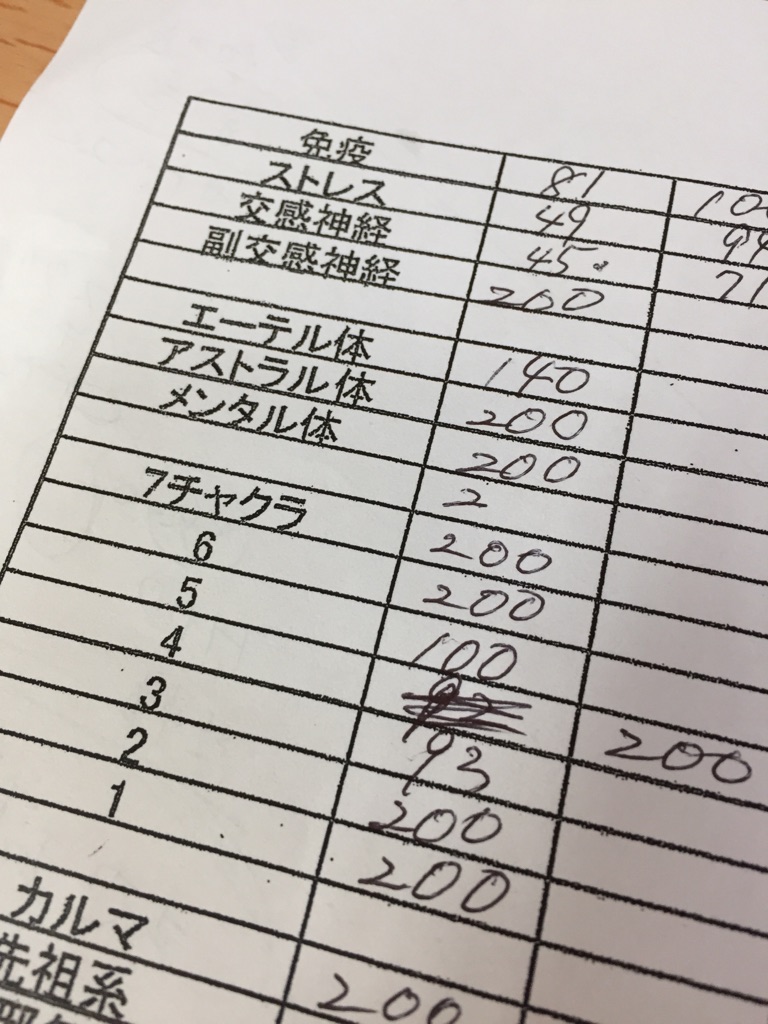 免疫 81
ストレス 49 94
交感神経 45 71
副交感神経 200
エーテル体 140
アストラル体 200
メンタル体 200
2
7チャクラ 200
6 200
5 100
4 200
3 93
2 200
1 200
カルマ 200
先祖系